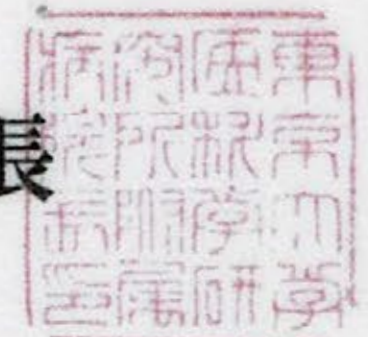 長
東京大学
医科学研
究所附属
病院長印